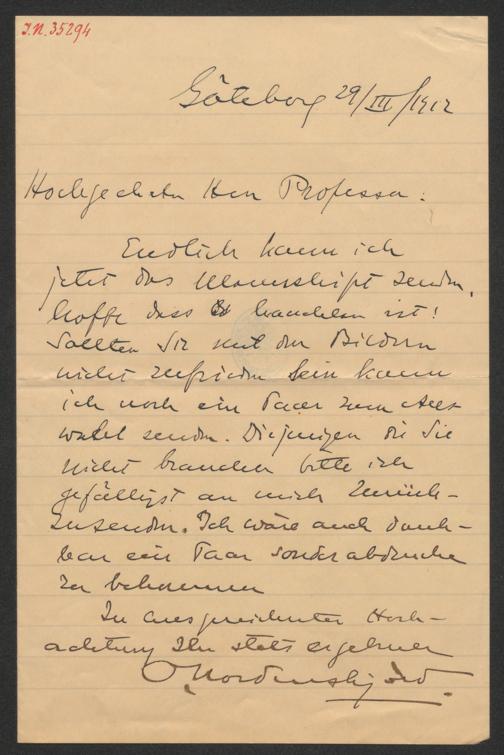 I.N. 35294
Göteborg 29/III/1912
Hochgeehrter Herr Professor:
Endlich kann ich
jetzt das Manuskript senden,
hoffe dass es brauchbar ist!
Sollten Sie mit den Bildern
nicht zufrieden sein kann
ich noch ein Paar zum Aus-
wahl senden. Diejenigen die Sie
nicht brauchen bitte ich
gefälligst an mich zurück-
zusenden. Ich wäre auch dank-
bar ein Paar Sonderabdrucke
zu bekommen
In ausgezeichneter Hoch-
achtung Ihr stets ergebener
O Nordenskjöld.